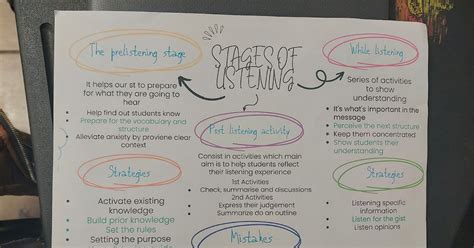 STAGES OF
LISTENING
The prelistening stage
It helps our st to prepare
for what they are going to
hear
Help find out students know
Prepare for the vocabulary and
structure
Alleviate anxiety by proviene clear
context
Strategies
Activate existing
knowledge
Build prior knowledge
Set the rules
Setting the purpose
Post listening activity
Consist in activities which main
aim is to help students reflect
their listening experience
1st Activities
Check, summarise and discussions
2nd Activities
Express their judgement
Summarize do an outline
Mistakes
While listening
Series of activities
to show
understanding
It's what's important in the
message
Perceive the next structure
Keep them concentrated
Show students their
understanding
Strategies
Listening specific
information
Listen for the gist
Listen opinions